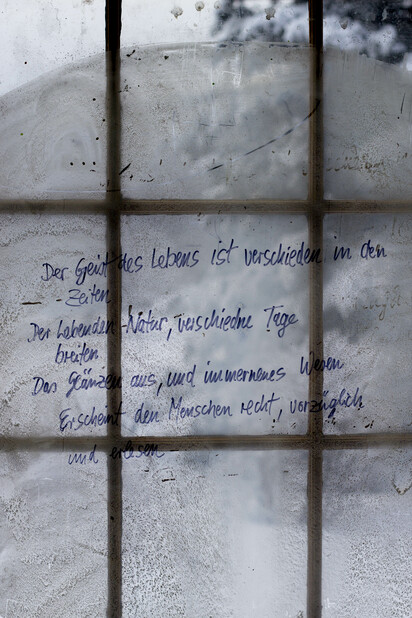 Der Geist des Lebens ist verschieden in den
Zeiten
Der Lebenden Natur, verschiedne Tage
breiten
Das Glänzen aus, und immerneues Wesen
Erscheint den Menschen recht, vorzüglich
und erlesen